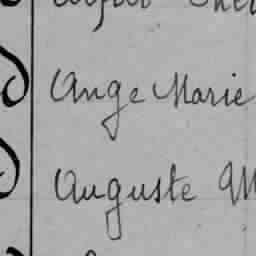 Ange Marie
Auguste M